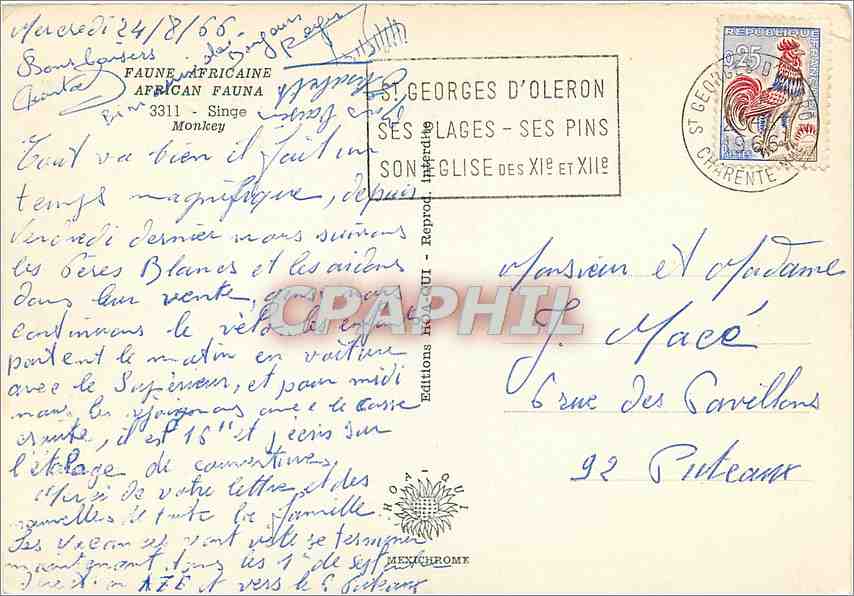 Mercredi 24/8/66
Bons baisers
FAUNE AFRICAINE
AFRICAN FAUNA
3311 - Singe
Monkey
Tout va bien il fait un
temps magnifique, depuis
vendredi dernier nous suivons
les Pères Blancs et les aidons
dans leur vente, nous
continuons le vélo, les enfants
partent le matin en voiture
avec le Supérieur, et pour midi
nous les rejoignons avec le casse
croûte, il est 15 et j'écris sur
l'étalage de couvertures,
de votre lettre et des
nouvelles de toute la famille.
Les vacances vont vite se terminer
maintenant dans les 1er de
et vers le 6 Puteaux
Editions HOA-QUI - Reprod. interdite
HOA-QUI
MEXICHROME
ST GEORGES D'OLERON
SES PLAGES - SES PINS
SON EGLISE DES XIe ET XIIe
REPUBLIQUE FRANÇAISE
0,25
POSTES
ST GEORGES D'OLERON
1966
CHARENTE-MME
Monsieur et Madame
J. Macé
6 rue des Pavillons
92 Puteaux
CPAPHIL